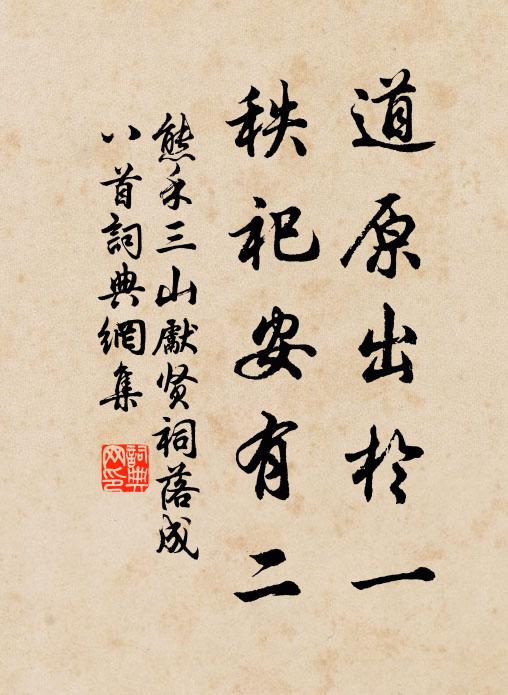 道原出於一
秩祀安有二
熊禾三山獻贤祠落成
八首詞典網集
詞典网印